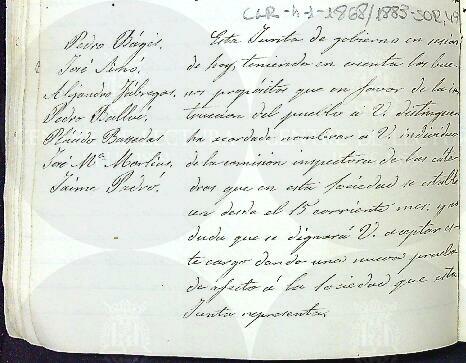 CLR-4-1-1868/1883-SOR,49
Pedro Bagés,
José Simó,
Alejandro Fábregas,
Pedro Ballvé,
Plácido Bassedas
José Mª Martins,
Jaime Pedro.
Esta Junta de gobierno en sesión
de hoy, teniendo en cuenta los bue-
nos propósitos que en favor de la ins
truccion del pueblo á V. distinguen
ha acordado nombrar á V. individuo
de la comision inspectora de las cáte-
dras que en esta Sociedad se estable
cen desde el 15 corriente mes. y no
duda que se dignará V. aceptar es-
te cargo dando una nueva prueba
de afecto á la Sociedad que esta
Junta representa.